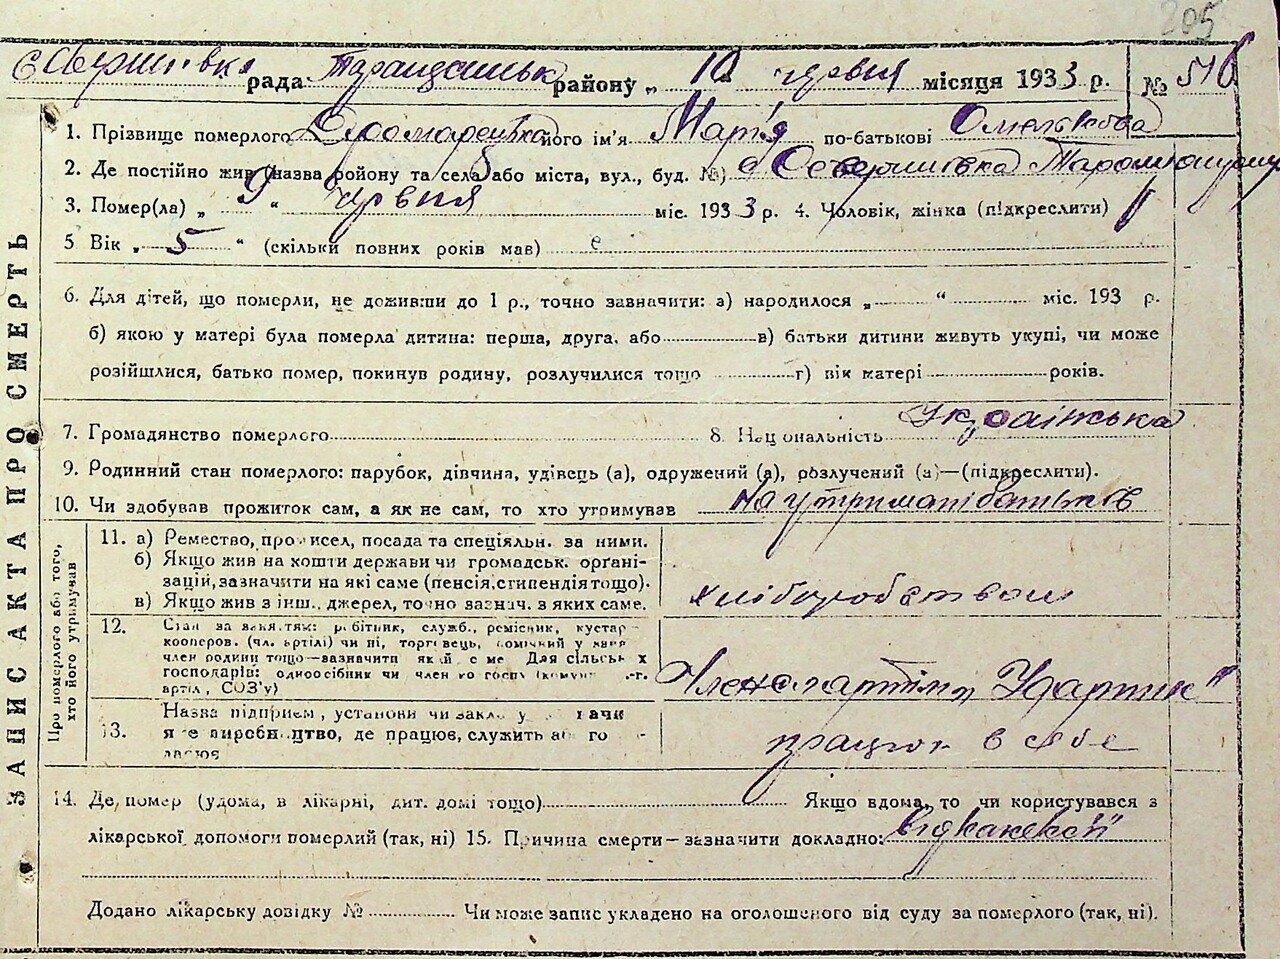 205
рада районү „ 10 " червня місяця 1933 р. № 516
1. Прізвище померлого його ім'я Мар'я по-батькові
2. Де постійно жив (назва району та села або міста, вул., буд. №)
3. Помер(ла) „ 9 " червня міс. 1933 р. 4. Чоловік, жінка (підкреслити)
5 Вік „ 5 " (скільки повних років мав)
6. Для дітей, що померли, не доживши до 1 р., точно зазначити: а) народилося „ " міс. 193 р.
б) якою у матері була померла дитина: перша, друга, або в) батьки дитини живуть укупі, чи може
розійшлися, батько помер, покинув родину, розлучилися тощо г) вік матері років.
7. Громадянство померлого 8. Національність Українська
9. Родинний стан померлого: парубок, дівчина, удівець (а), одружений (а), розлучений (а)—(підкреслити).
10. Чи здобував прожиток сам, а як не сам, то хто утримував на утримані батьків
ЗАПИС АКТА ПРО СМЕРТЬ
Про померлого або того, хто його утримував
11. а) Ремество, промисел, посада та спеціяльн. за ними.
б) Якщо жив на кошти держави чи громадськ. орґані-
зацій, зазначити на які саме (пенсія, стипендія тощо).
в) Якщо жив з інш. джерел, точно зазнач. з яких саме.
хліборобством
12. Стан за занятям: робітник, служб., ремісник, кустар
кооперов. (чл. артілі) чи ні, торговець,
член родини тощо—зазначити Для сільськ х
господарів: одноосібник чи член
артіл, СОЗ'у)
Член с/г артіли „Ударник"
13. Назва підприєм, установи чи
виробництво, де працює, служить
працює в себе
14. Де помер (удома, в лікарні, дит. домі тощо) Якщо вдома, то чи користувався з
лікарської допомоги померлий (так, ні) 15. Причина смерти—зазначити докладно: від кахексії
Додано лікарську довідку № Чи може запис укладено на оголошеного від суду за померлого (так, ні).